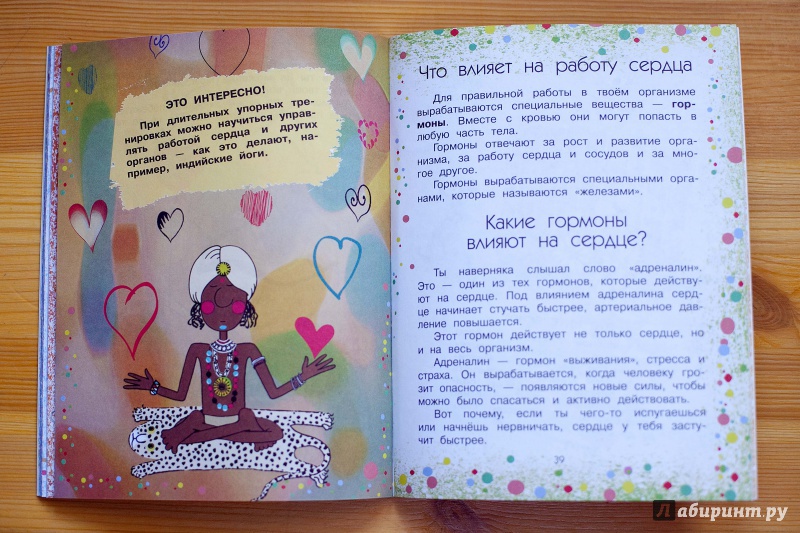 ЭТО ИНТЕРЕСНО!
При длительных упорных тре-
нировках можно научиться управ-
лять работой сердца и других
органов — как это делают, на-
пример, индийские йоги.
Что влияет на работу сердца
Для правильной работы в твоём организме
вырабатываются специальные вещества — гор-
моны. Вместе с кровью они могут попасть в
любую часть тела.
Гормоны отвечают за рост и развитие орга-
низма, за работу сердца и сосудов и за мно-
гое другое.
Гормоны вырабатываются специальными орга-
нами, которые называются «железами».
Какие гормоны
влияют на сердце?
Ты наверняка слышал слово «адреналин».
Это — один из тех гормонов, которые действу-
ют на сердце. Под влиянием адреналина серд-
це начинает стучать быстрее, артериальное дав-
ление повышается.
Этот гормон действует не только сердце, но
и на весь организм.
Адреналин — гормон «выживания», стресса и
страха. Он вырабатывается, когда человеку гро-
зит опасность, — появляются новые силы, чтобы
можно было спасаться и активно действовать.
Вот почему, если ты чего-то испугаешься
или начнёшь нервничать, сердце у тебя засту-
чит быстрее.
39
Лабиринт.ру